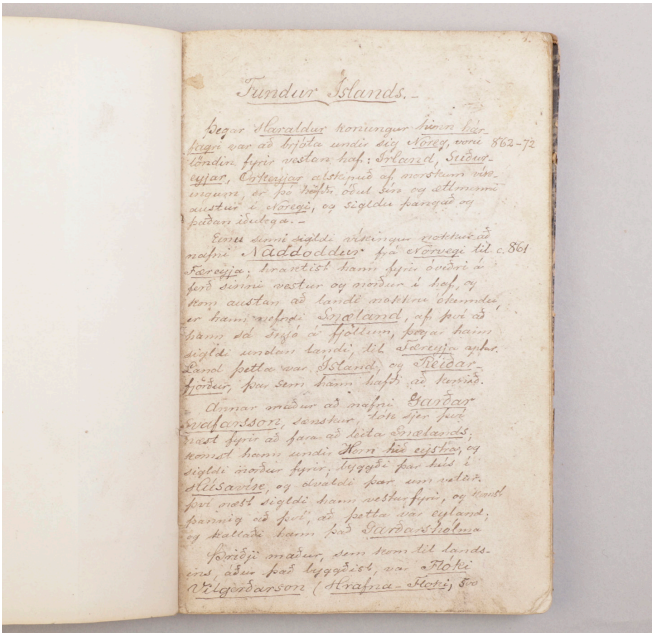 Fundur Íslands.-
Þegar Haraldur konungur hinn hár-
fagri var að brjóta undir sig Noreg, voru 862-72
löndin fyrir vestan haf: Írland, Suður-
eyjar, Orkneyjar alskipuð af norskum vík-
ingum, er þó höfðu óðul sín og ættmenn
austur í Noregi, og sigldu þangað og
þaðan iðulega.-
Einu sinni sigldi víkingur nokkur að
nafni Naddoddur frá Norvegi til c. 861
Færeyja; hraktist hann fyrir óviðri á
ferð sinni vestur og norður í haf, og
kom austan að landi nokkru ókenndu,
er hann nefndi Snæland, af því að
hann sá snjó á fjöllum, þegar hann
sigldi undan landi, til Færeyja aptur.
Land þetta var Ísland, og Reiðar-
fjörður, þar sem hann hafði að komið.
Annar maður að nafni Garðar
Svafarsson, sænskur, tók sjer því
næst fyrir að fara að leita Snælands;
komst hann undir Horn hið eystra, og
sigldi norður fyrir; byggði þar hús í
Húsavík, og dvaldi þar um vetur.
Því næst sigldi hann vestur fyrir, og komst
þannig að því, að þetta var eyland;
og kallaði hann það Garðarshólma
Þriðji maður, sem kom til lands-
ins, áður það byggðist, var Flóki
Vilgerðarson (Hrafna-Flóki, svo